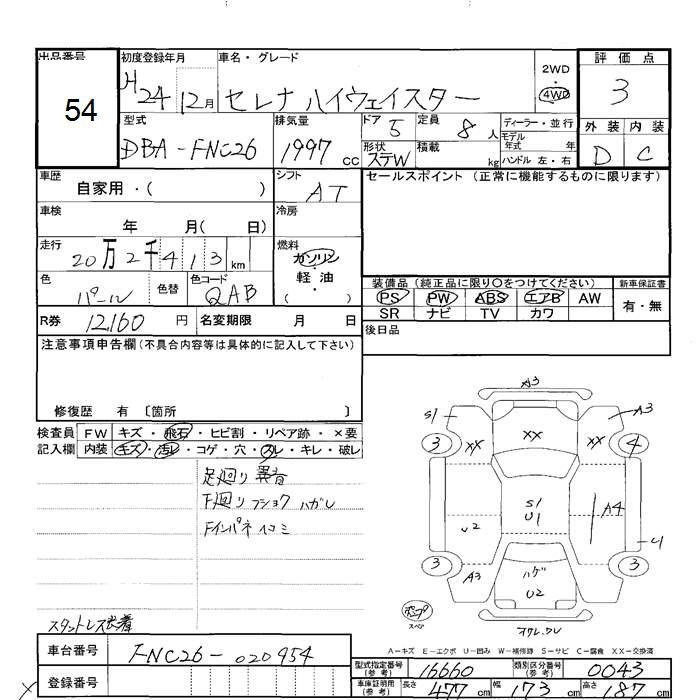 出品番号
54
初度登録年月
H24 12月
車名・グレード
セレナ ハイウェイスター
2WD
4WD
評価点
3
型式
DBA-FNC26
排気量
1997 cc
ドア 5
定員 8 人
形状 ステW
積載 kg
ディーラー・並行
モデル年式 年式
ハンドル 左・右
外装 内装
D C
車歴
自家用・( )
シフト
AT
車検
年 月( 日)
冷房
走行
20万2千413 km
燃料
ガソリン
軽油
( )
色
パール
色替
色コード
QAB
R券 12,160 円
名変期限 月 日
セールスポイント (正常に機能するものに限ります)
装備品(純正品に限り○をつけてください)
新車保証書
PS PW ABS エアB AW
有・無
SR ナビ TV カワ
後日品
注意事項申告欄(不具合内容等は具体的に記入して下さい)
修復歴 有 〔箇所 〕
検査員記入欄
FW キズ・飛石・ヒビ割・リペア跡・×要
内装 キズ・汚レ・コゲ・穴・スレ・キレ・破レ
足廻り 異音
下廻り フショク ハガレ
Fインパネ イコミ
スタットレス装着
A3
S1
A3
3
XX
XX
XX
4
S1
U1
A4
U2
U
3
A3
ハゲ
U2
3
スペア
A-キズ E-エクボ U-凹み W-補修跡 S-サビ C-腐食 XX-交換済
車台番号
FNC26-020954
登録番号
型式指定番号(参考)
16660
類別区分番号(参考)
0043
車庫証明用(参考)
長さ 477 cm
幅 173 cm
高さ 187 cm